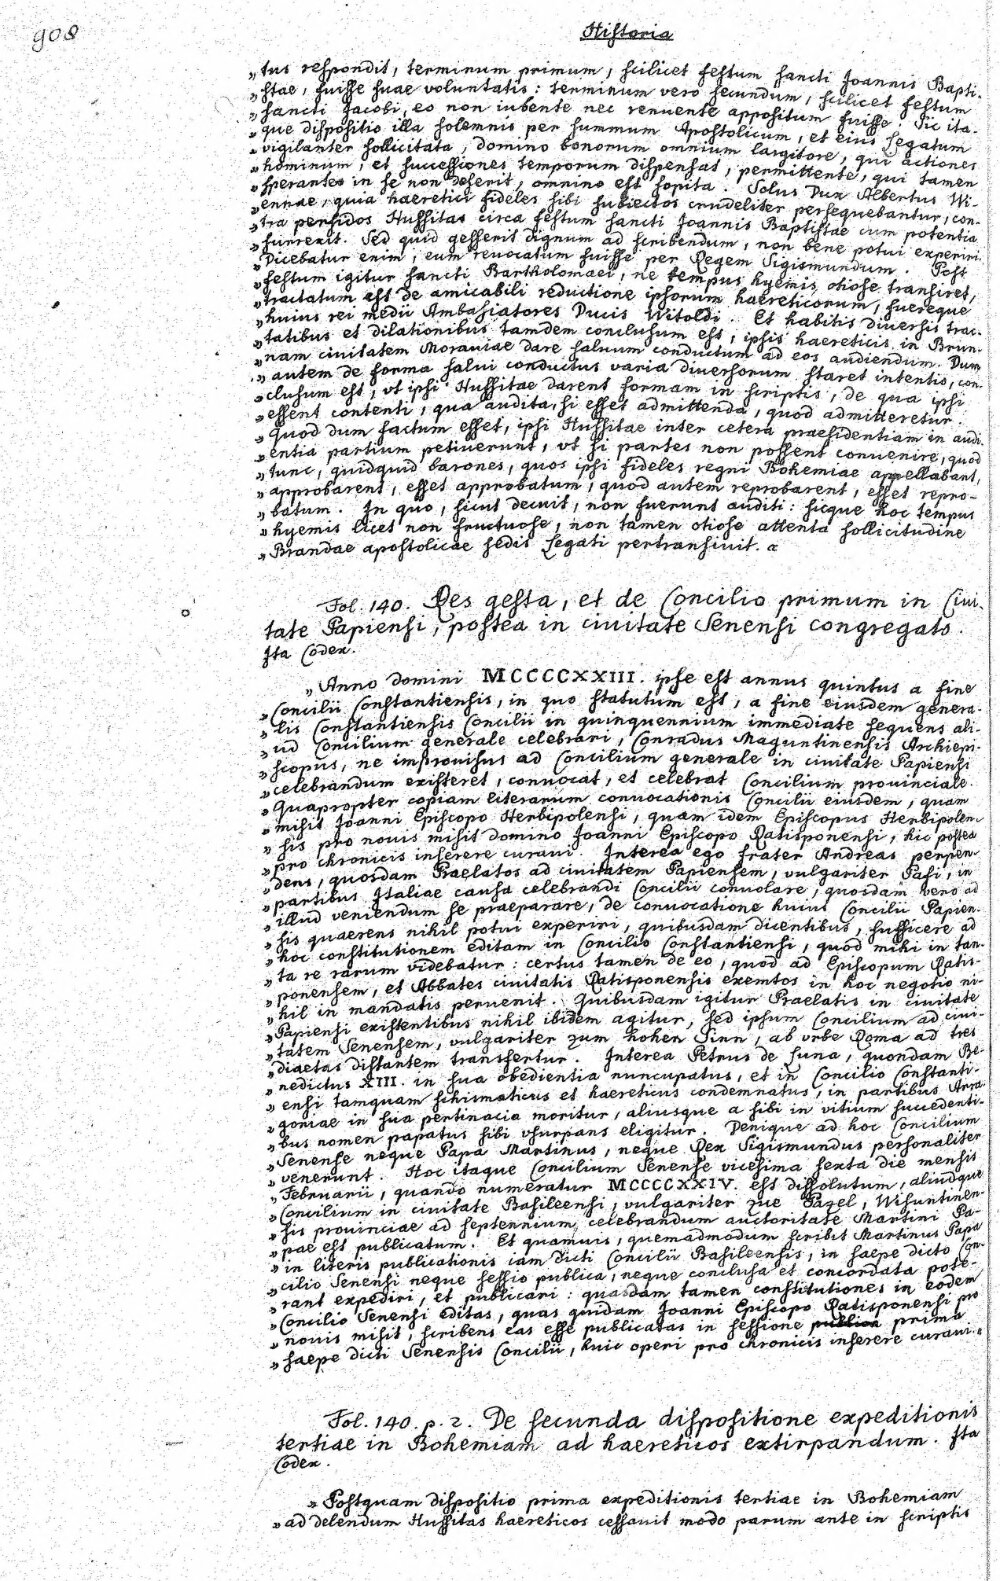 908
Historia
„tus respondit, terminum primum, scilicet festum sancti Joannis Bapti-
„stae, fuisse suae voluntatis: terminum vero secundum, scilicet festum
„sancti Jacobi, eo non iubente nec renuente appositum fuisse. Sic ita-
„que dispositio illa solemnis per summum Apostolicum, et eius Legatum
„vigilanter sollicitata, domino bonorum omnium largitore, qui actiones
„hominum, et successiones temporum dispensat, permittente, qui tamen
„sperantes in se non deserit, omnino est sopita. Solus Dux Albertus Wi-
„ennae, quia haeretici fideles sibi subiectos crudeliter persequebantur, con-
„tra perfidos Hussitas circa festum sancti Joannis Baptistae cum potentia
„surrexit. Sed quid gesserit dignum ad scribendum, non bene potui experiri.
„Dicebatur enim, eum revocatum fuisse per Regem Sigismundum. Post
„festum igitur sancti Bartholomaei, ne tempus hyemis otiose transiret,
„tractatum est de amicabili reductione ipsorum haereticorum, fuereque
„huius rei medii Ambasiatores Ducis Witoldi. Et habitis diversis trac-
„tatibus et dilationibus tamdem conclusum est, ipsis haereticis in Brun-
„nam civitatem Moraviae dare salvum conductum ad eos audiendum. Dum
„autem de forma salvi conductus varia diversorum staret intentio, con-
„clusum est, vt ipsi Hussitae darent formam in scriptis, de qua ipsi
„essent contenti, qua audita, si esset admittenda, quod admitteretur.
„Quod dum factum esset, ipsi Hussitae inter cetera praesidentiam in audi-
„entia partium petiverunt, vt si partes non possent convenire, quod
„tunc, quidquid barones, quos ipsi fideles regni Bohemiae appellabant,
„approbarent, esset approbatum, quod autem reprobarent, esset repro-
„batum. In quo, sicut decuit, non fuerunt auditi: sicque hoc tempus
„hyemis licet non fructuose, non tamen otiose attenta sollicitudine
„Brandae apostolicae sedis Legati pertransivit. a
Fol. 140. Res gesta, et de Concilio primum in Civi-
tate Papiensi, postea in civitate Senensi congregato.
Ita Codex.
„Anno domini MCCCCXXIII. ipse est annus quintus a fine
„Concilii Constantiensis, in quo statutum est, a fine eiusdem genera-
„lis Constantiensis Concilii in quinquennium immediate sequens ali-
„ud Concilium generale celebrari, Conradus Maguntinensis Archiepi-
„scopus, ne improvisus ad Concilium generale in civitate Papiensi
„celebrandum existeret, convocat, et celebrat Concilium provinciale.
„Quapropter copiam literarum convocationis Concilii eiusdem, quam
„misit Joanni Episcopo Herbipolensi, quam idem Episcopus Herbipolen-
„sis pro novis misit domino Joanni Episcopo Ratisponensi, hic postea
„pro chronicis inserere curavi. Interea ego frater Andreas perpen-
„dens, quosdam Praelatos ad civitatem Papiensem, vulgariter Pafi, in
„partibus Italiae causa celebrandi Concilii convolare, quosdam vero ad
„illud veniendum se praeparare, de convocatione huius Concilii Papien-
„sis quaerens nihil potui experiri, quibusdam dicentibus, sufficere ad
„hoc constitutionem editam in Concilio Constantiensi, quod mihi in tan-
„ta re rarum videbatur: certus tamen de eo, quod ad Episcopum Ratis-
„ponensem, et Abbates civitatis Ratisponensis exemtos in hoc negotio ni-
„hil in mandatis pervenit. Quibusdam igitur Praelatis in civitate
„Papiensi existentibus nihil ibidem agitur, sed ipsum Concilium ad civi-
„tatem Senensem, vulgariter zum hohen Sinn, ab vrbe Roma ad tres
„diaetas distantem transfertur. Interea Petrus de Luna, quondam Be-
„nedictus XIII. in sua obedientia nuncupatus, et in Concilio Constanti-
„ensi tamquam schismaticus et haereticus condemnatus, in partibus Arra-
„goniae in sua pertinacia moritur, aliusque a sibi in vitium succedenti-
„bus nomen papatus sibi vsurpans eligitur. Denique ad hoc Concilium
„Senense neque Papa Martinus, neque Rex Sigismundus personaliter
„venerunt. Hoc itaque Concilium Senense vicesima sexta die mensis
„Februarii, quando numeratur MCCCCXXIV. est dissolutum, aliudque
„Concilium in civitate Basileensi, vulgariter zue Pazel, Wisuntinen-
„sis provinciae ad septennium celebrandum auctoritate Martini Pa-
„pae est publicatum. Et quamvis, quemadmodum scribit Martinus Papa
„in literis publicationis iam dicti Concilii Basileensis, in saepe dicto Con-
„cilio Senensi neque sessio publica, neque conclusa et concordata pote-
„rant expediri, et publicari: quasdam tamen constitutiones in eodem
„Concilio Senensi editas, quas quidam Joanni Episcopo Ratisponensi pro
„novis misit, scribens eas esse publicatas in sessione prima
„saepe dicti Senensis Concilii, huic operi pro chronicis inserere curavi. „
Fol. 140. p. 2. De secunda dispositione expeditionis
tertiae in Bohemiam ad haereticos extirpandum. Ita
Codex.
„Postquam dispositio prima expeditionis tertiae in Bohemiam
„ad delendum Hussitas haereticos cessavit modo parum ante in scriptis